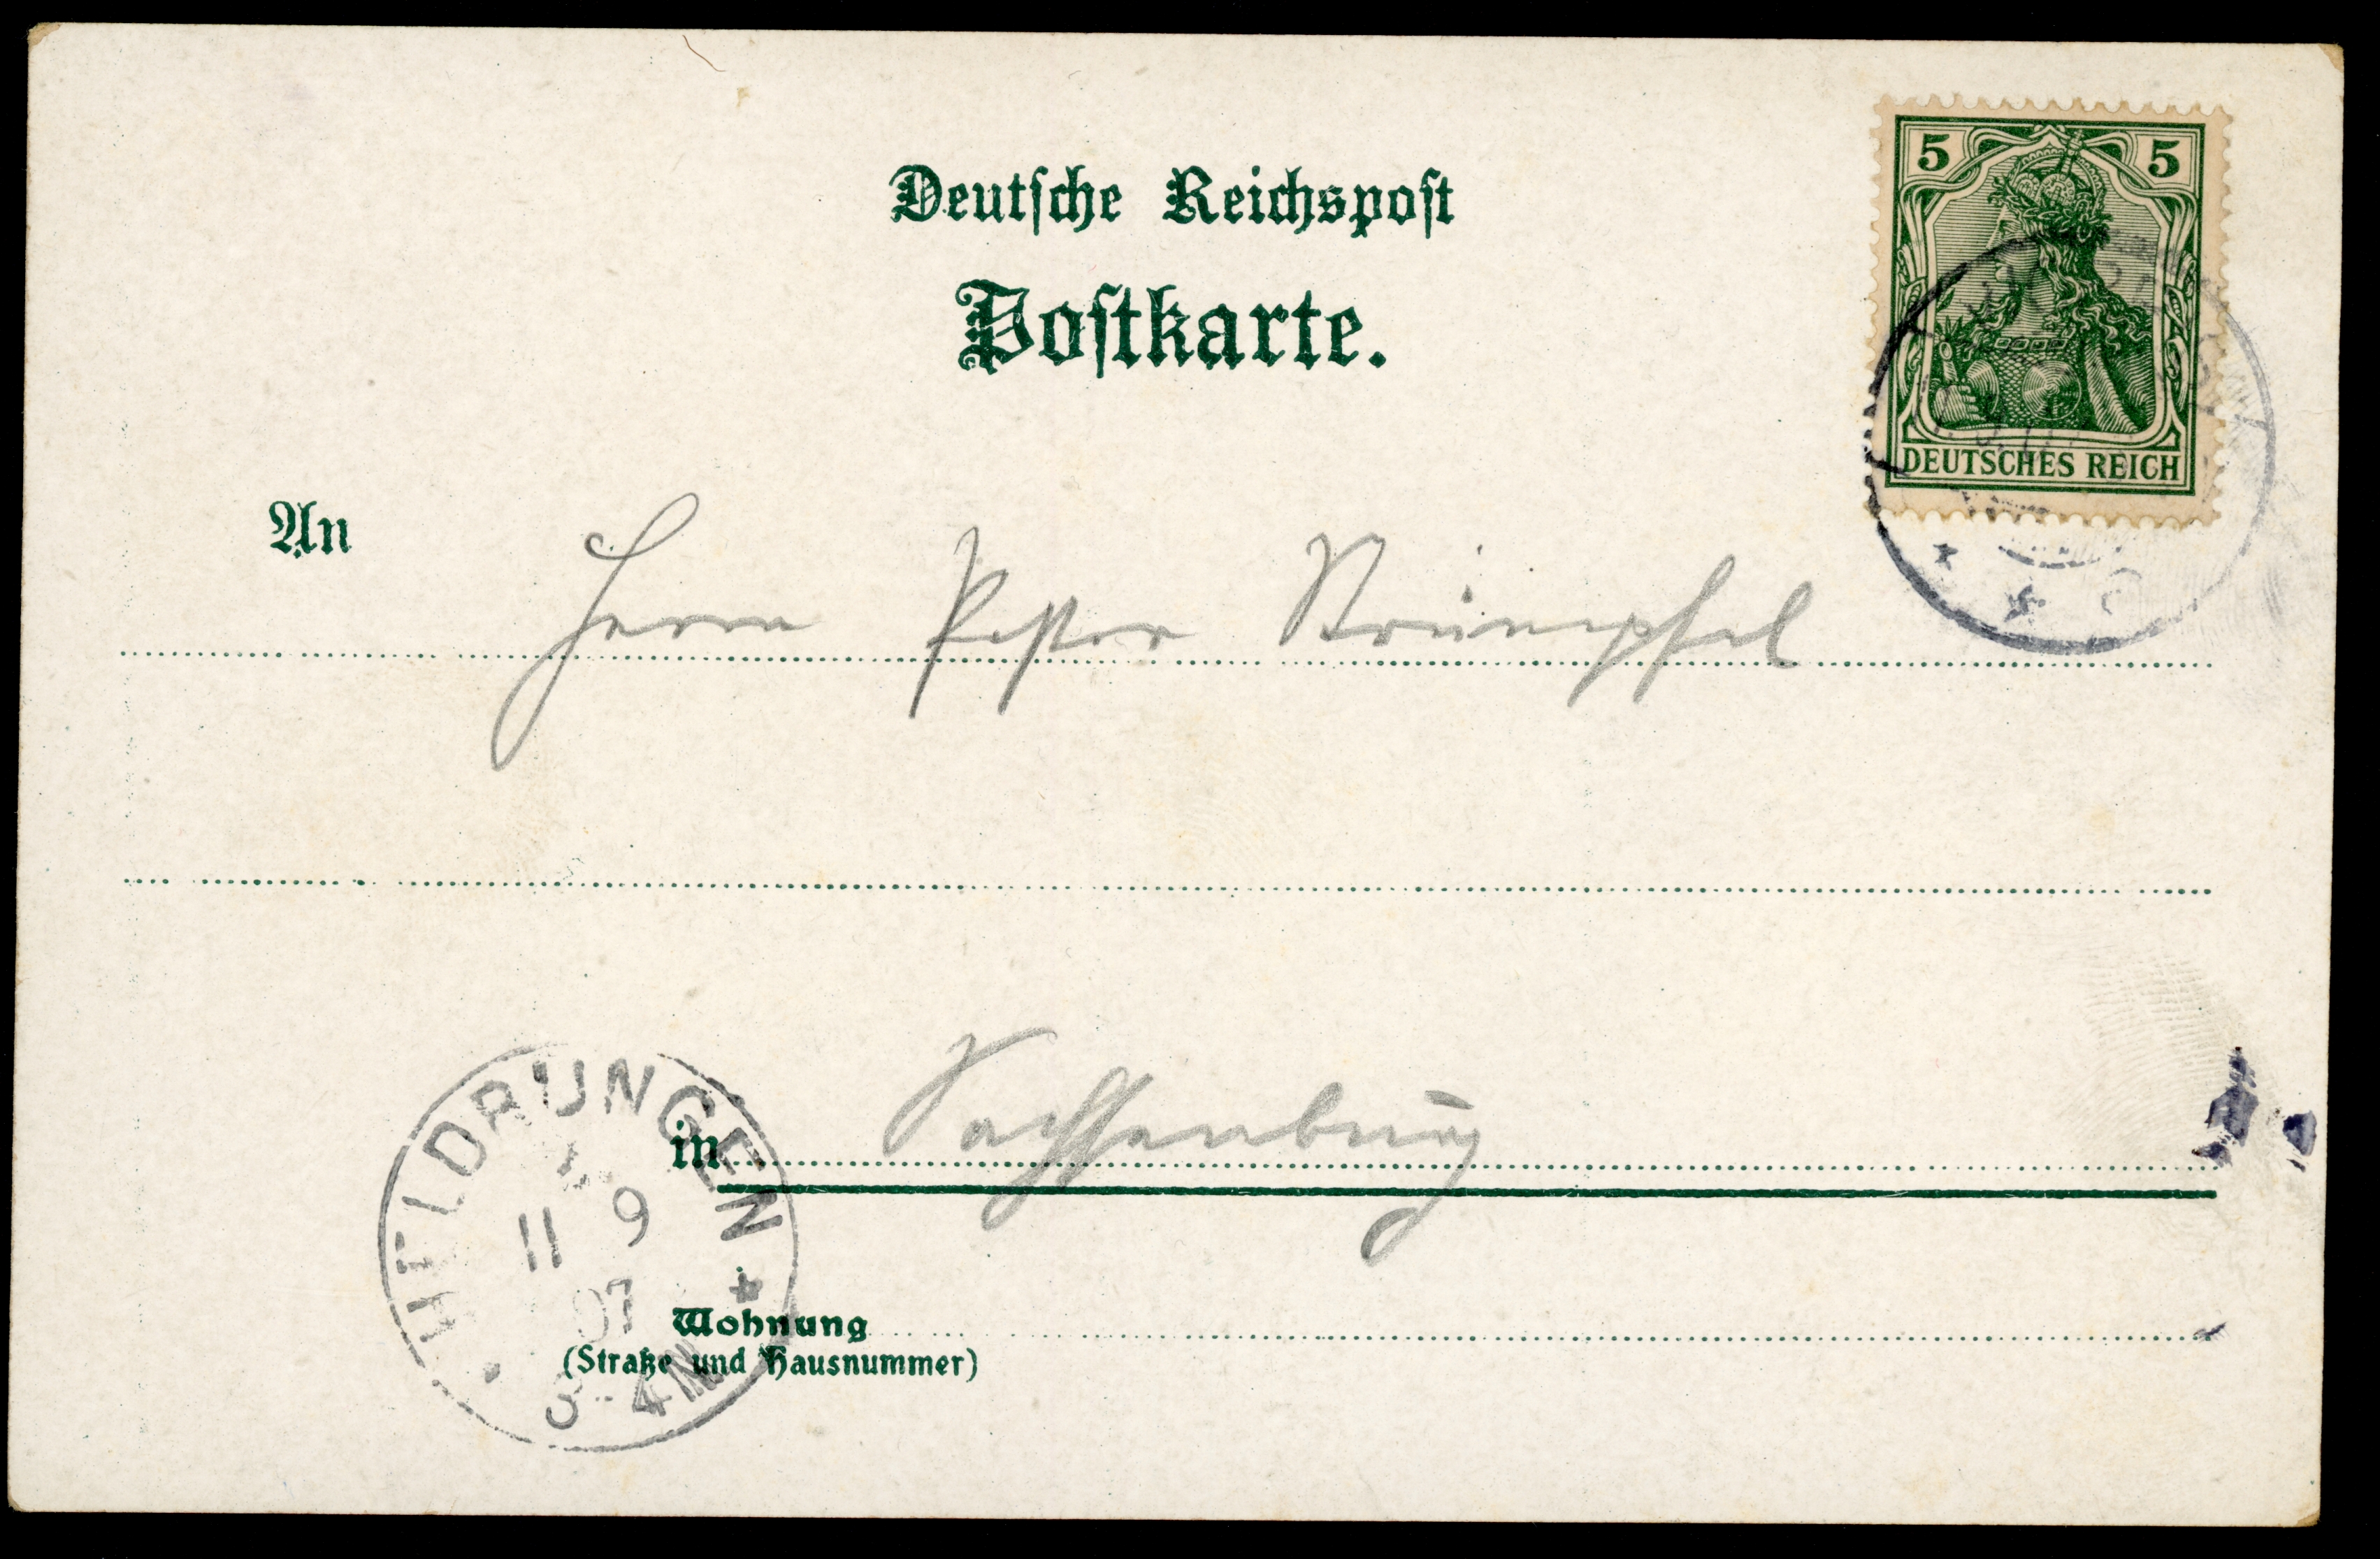 Deutsche Reichspost
Postkarte.
5 5
DEUTSCHES REICH
An Herrn Pastor Strümpfel
in Sachsenburg
HELDRUNGEN
11 9
07
3-4N
Wohnung
(Straße und Hausnummer)